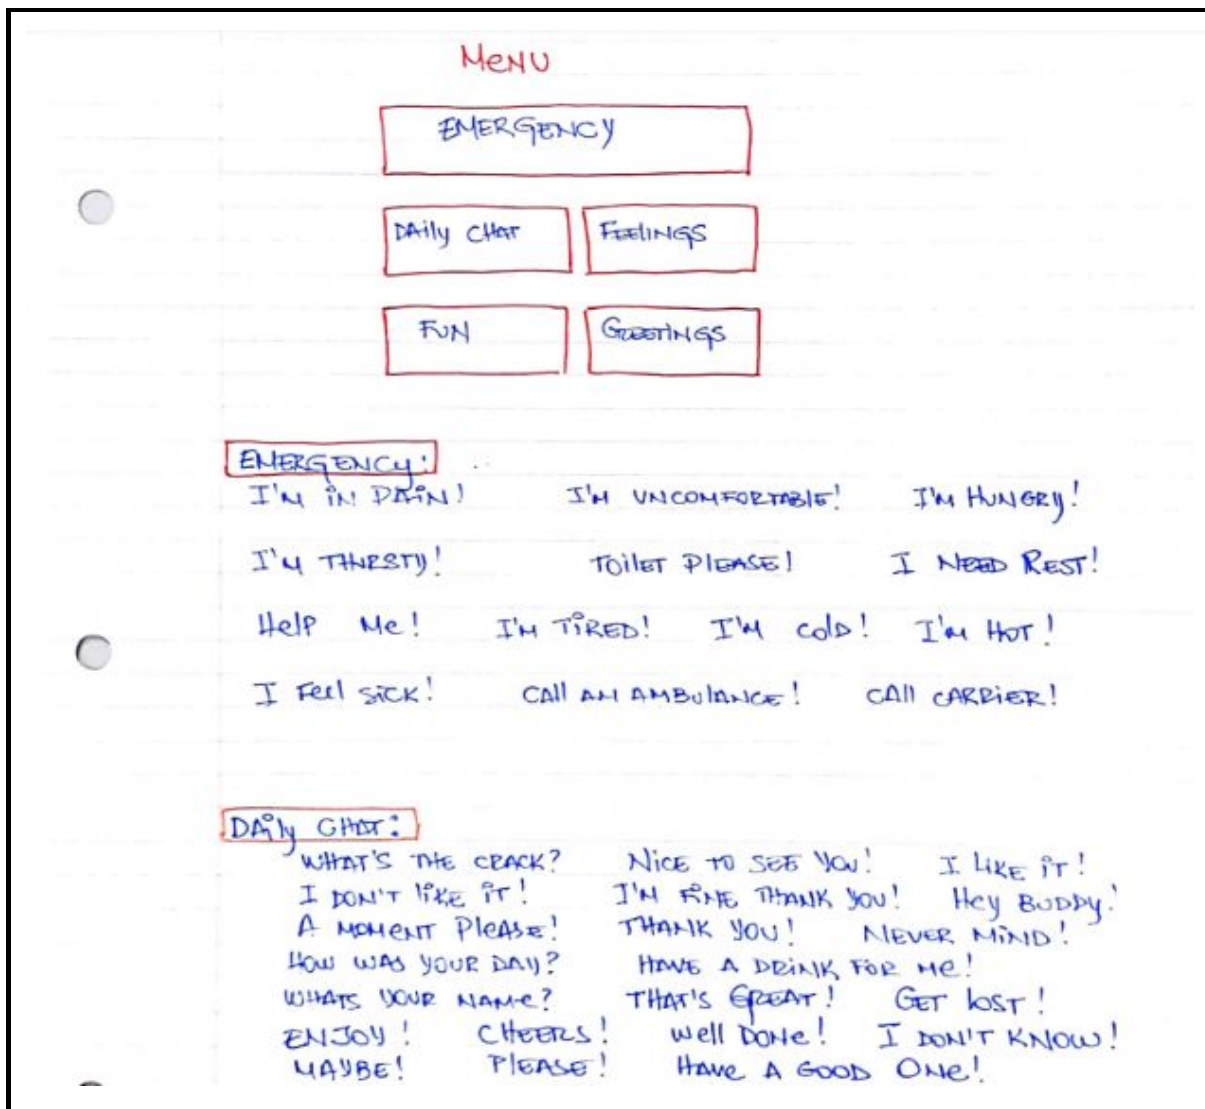 MENU
EMERGENCY
DAILY CHAT FEELINGS
FUN GREETINGS
EMERGENCY:
I'M IN PAIN! I'M UNCOMFORTABLE! I'M HUNGRY!
I'M THIRSTY! TOILET PLEASE! I NEED REST!
HELP ME! I'M TIRED! I'M COLD! I'M HOT!
I FEEL SICK! CALL AN AMBULANCE! CALL CARRIER!
DAILY CHAT:
WHAT'S THE CRACK? NICE TO SEE YOU! I LIKE IT!
I DON'T LIKE IT! I'M FINE THANK YOU! HEY BUDDY!
A MOMENT PLEASE! THANK YOU! NEVER MIND!
HOW WAS YOUR DAY? HAVE A DRINK FOR ME!
WHATS YOUR NAME? THAT'S GREAT! GET LOST!
ENJOY! CHEERS! WELL DONE! I DON'T KNOW!
MAYBE! PLEASE! HAVE A GOOD ONE!